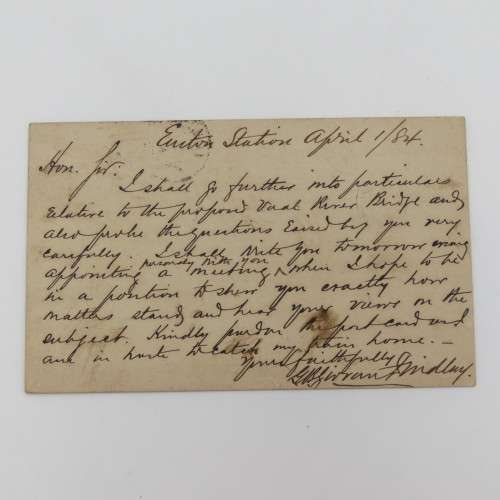 Euston Station April 1/84.
Hon. Sir.
I shall go further into particulars
relative to the proposed Vaal River Bridge and
also probe the questions raised by you very
carefully. I shall write you tomorrow evening
appointing a meeting personally with you, when I hope to be
in a position to show you exactly how
matters stand, and hear your views on the
subject. Kindly pardon the post card and
am in haste to catch my train home. —
Yours faithfully
Findlay.